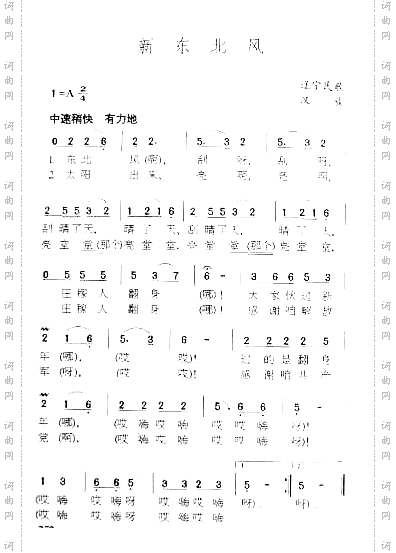 新 东 北 风
辽宁民歌
汉 族
1=A 2/4
中速稍快 有力地
0 2 2 6 | 2 2. | 5. 3 2 | 5. 3 2 |
1. 东北 风(啊), 刮 呀, 刮 啊,
2. 太阳 出来, 亮 啊, 亮 啊,
2 5 5 3 2 | 1 2 1 6 | 2 5 5 3 2 | 1 2 1 6 |
刮晴了天, 晴 了 天, 刮晴了天, 晴 了 天,
亮堂 堂(那个)亮堂 堂, 亮堂 堂(那个)亮堂 堂,
0 5 5 5 | 5 3 7 | 6 - | 3 6 6 6 |
庄稼人 翻身 (哪)! 大家伙过新
庄稼人 翻身 (哪)! 感谢咱解放
2 1 6 | 5. 3 | 2 - | 1 2 2 2 |
年(哪), (哎 哎)! 过的是翻身
军(呀), (哎 哎)! 感谢咱共产
2 1 6 | 2 2 2 2 | 5. 6 6 | 5 - |
年(哪), (哎嗨哎嗨 哎嗨 嗨 呀)!
党(啊), (哎嗨哎嗨 哎嗨 嗨 呀)!
1 3 | 6 6 5 | 4 3 2 1 | 5 - :| 5 - ‖
(哎 嗨 哎嗨呀 哎嗨哎嗨 呀). 呀)!
(哎 嗨 哎嗨呀 哎嗨哎嗨
词曲网
词曲网
词曲网
词曲网
词曲网
词曲网
词曲网
词曲网